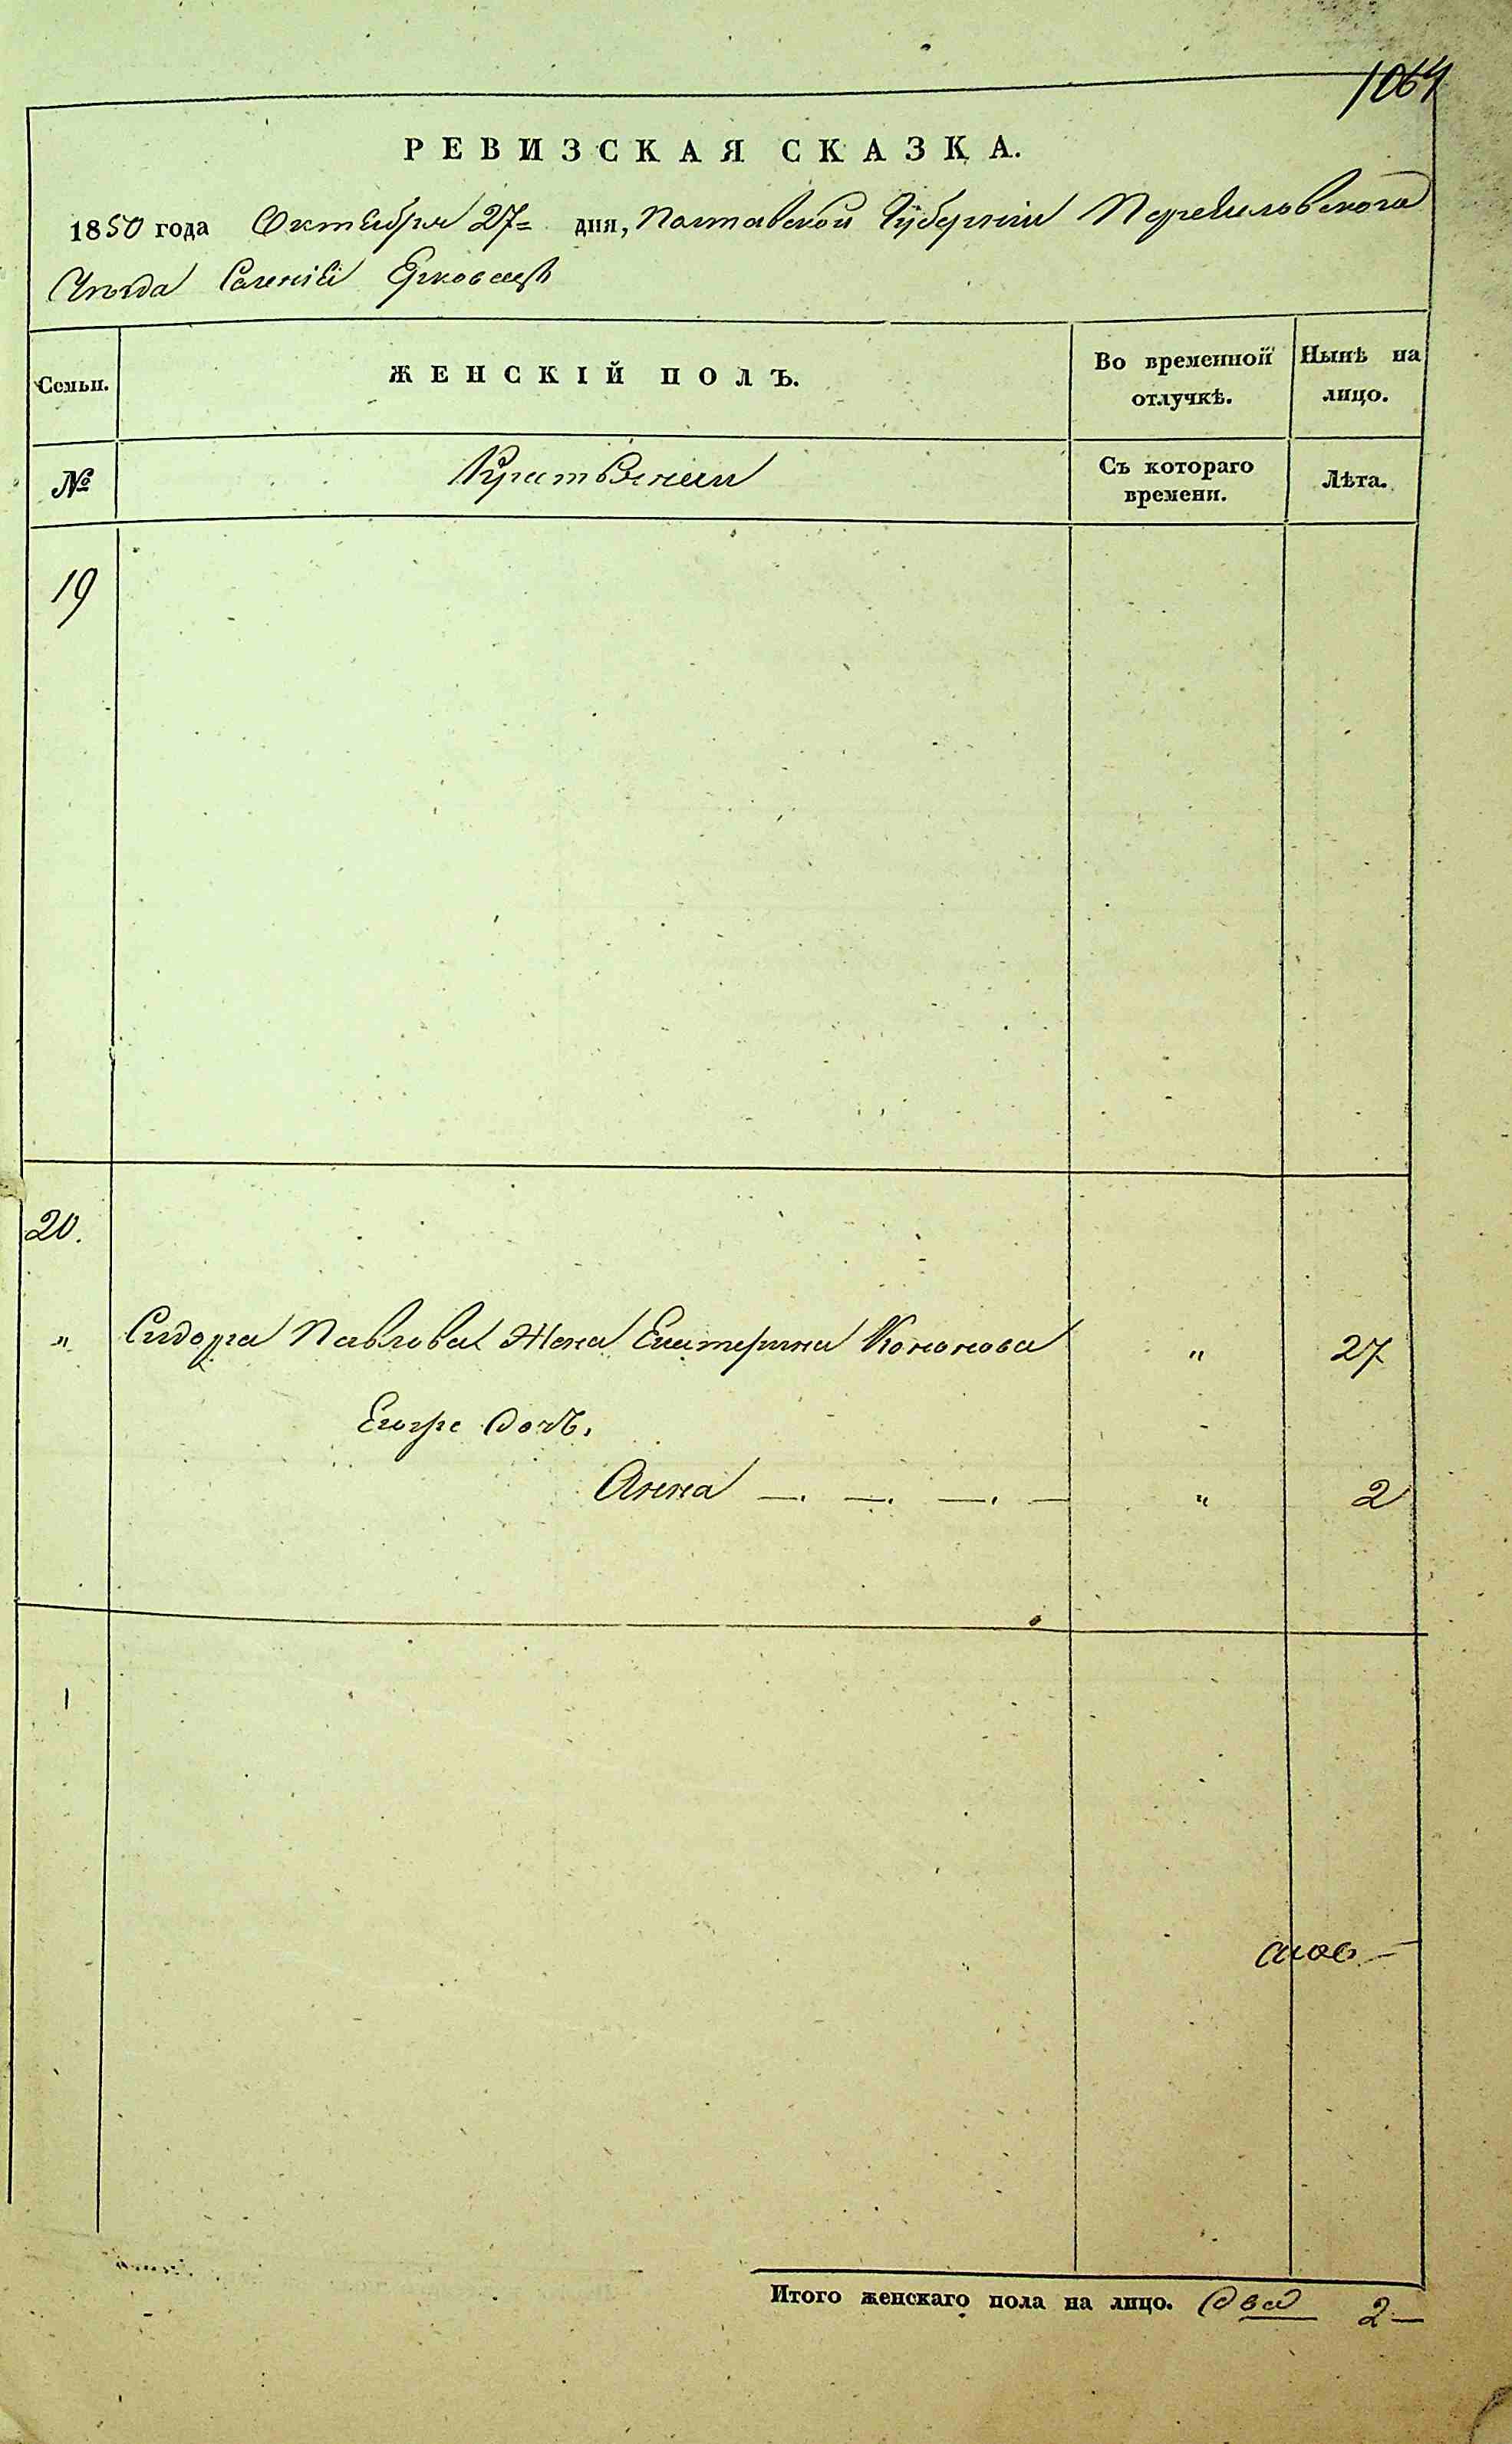 1064
РЕВИЗСКАЯ СКАЗКА.
1850 года Октября 27 = дня, Полтавской Губерніи
Уезда Селенія Ерковецъ
Семьи.
ЖЕНСКІЙ ПОЛЪ.
Во временной отлучкѣ.
Нынѣ на лицо.
№
Съ котораго времени.
Лѣта.
19
20.
" Сидора Павлова Жена Екатерина Кононова " 27
Дочь.
Анна — . — . — . — " 2
Итого женскаго пола на лицо. два 2 —